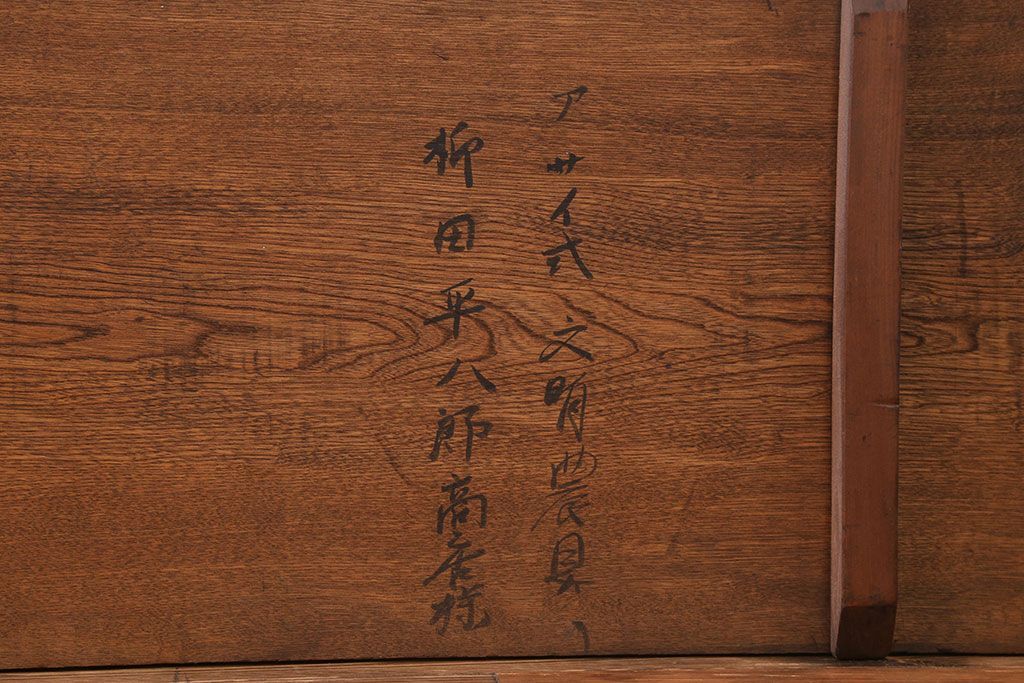 アサイ式文明農具
柳田平八郎高店様